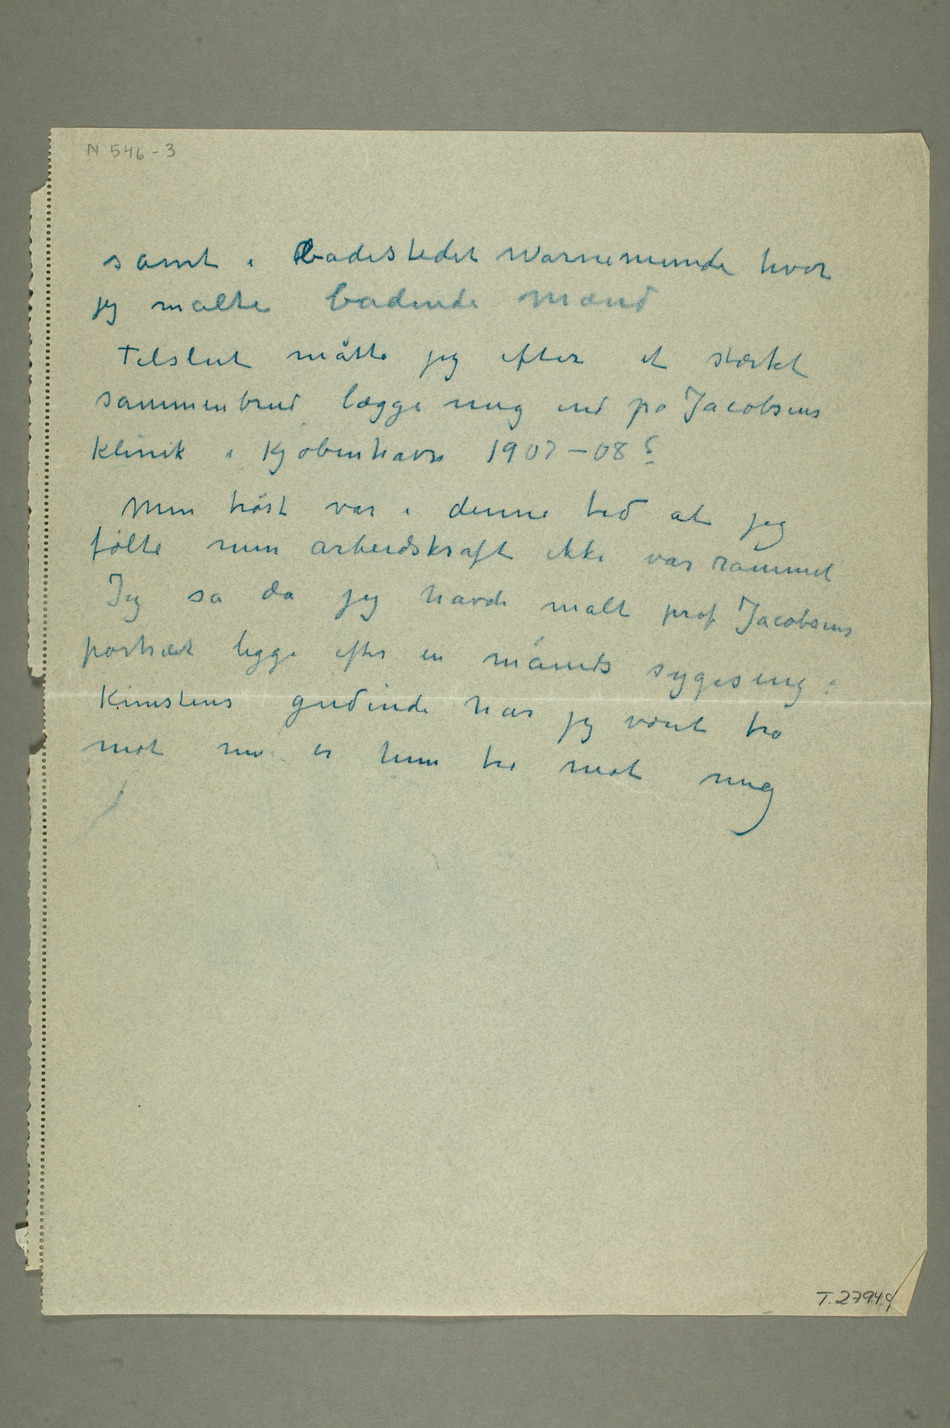 N 546-3
samt i Badestedet Warnemünde hvor
jeg malte badende mænd
Tilslut måtte jeg efter et stærkt
sammenbrud lægge mig ind på Jacobsens
Klinik i Kjøbenhavn 1907–08?
Min trøst var i denne tid at jeg
følte min arbeidskraft ikke var rammet
Jeg sa da jeg havde malt prof Jacobsens
portræt ligge efter en måneds sygeseng:
Kunstens gudinde har jeg været tro
mot nu er hun tro mot mig
T.2794.9